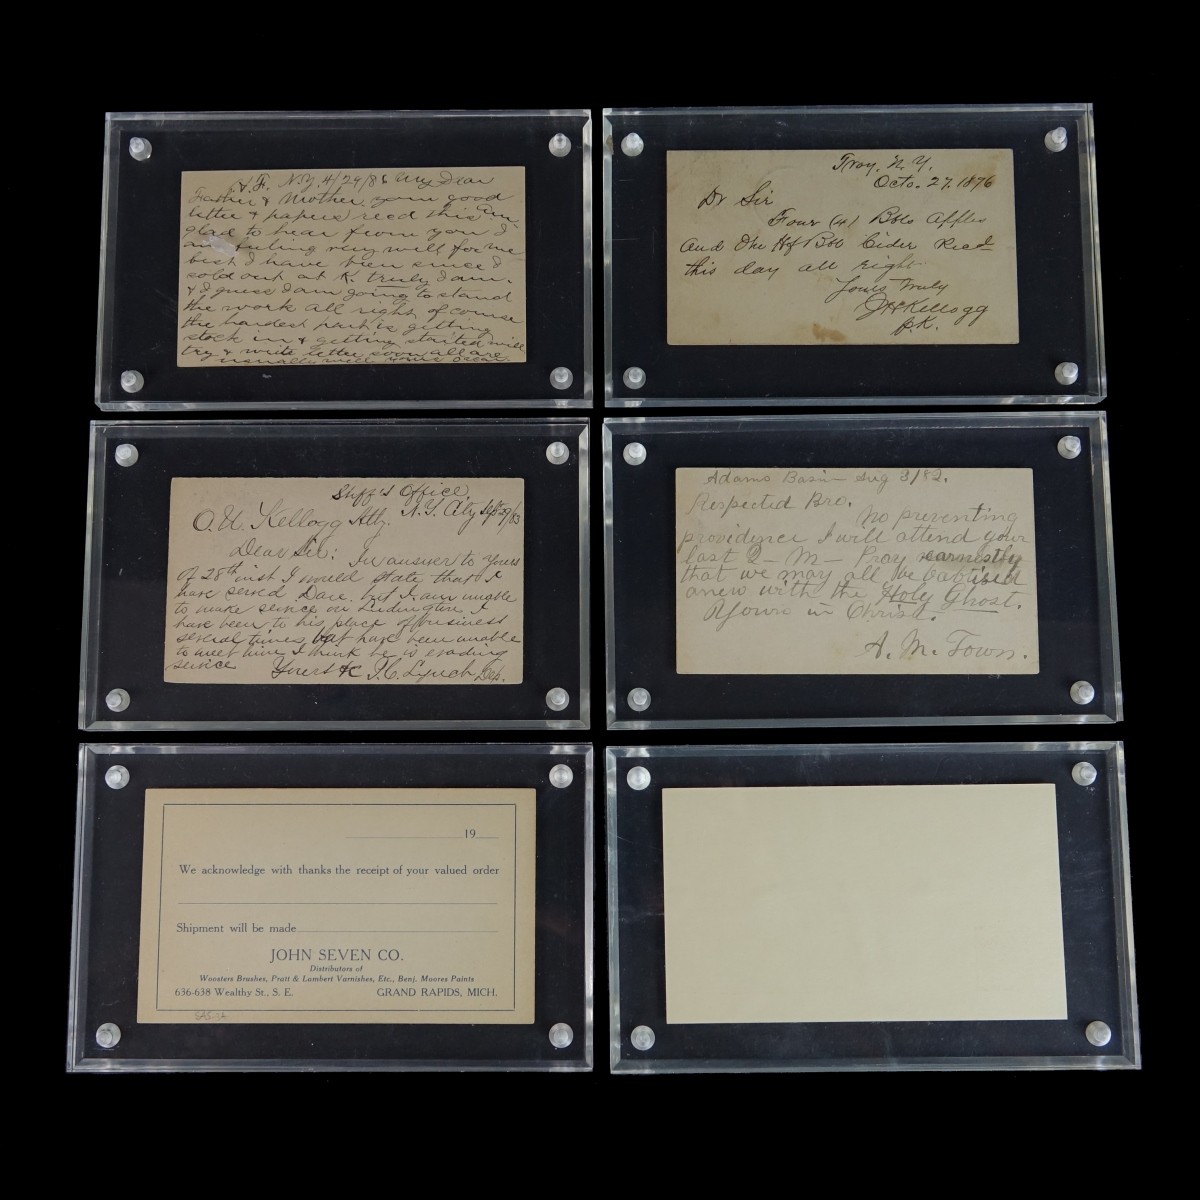 N.Y. 4/29/86 My Dear
Father & Mother, your good
letter & papers recd this am
glad to hear from you I
am feeling very well for me
best I have been since I
sold out at K. truly I am.
& I guess I am going to stand
the work all right of course
the hardest part is getting
stock in & getting started will
try & write letter soon all are
usually well yours Oscar
Troy, N. Y.
Octo. 27. 1876
Dr Sir
Four (4) Bbls Apples
and One Hf Bbl Cider Recd
this day all right.
Yours truly
J H Kellogg
Shff's Office,
N.Y. City Sept 29/83
O. U. Kellogg Atty.
Dear Sir: In answer to yours
of 28th inst I would state that I
have served Dare but I am unable
to make service on Ludington. I
have been to his place of business
several times, but have been unable
to meet him I think he is evading
service Yours &c T. C. Lynch Dep.
Adams Basin Aug 3/82.
Respected Bro.
No preventing
providence I will attend your
last Q - M - Pray earnestly
that we may all be baptised
anew with the Holy Ghost.
Yours in Christ.
A. M. Town.
19
We acknowledge with thanks the receipt of your valued order
Shipment will be made
JOHN SEVEN CO.
Distributors of
Woosters Brushes, Pratt & Lambert Varnishes, Etc., Benj. Moores Paints
636-638 Wealthy St., S. E. GRAND RAPIDS, MICH.